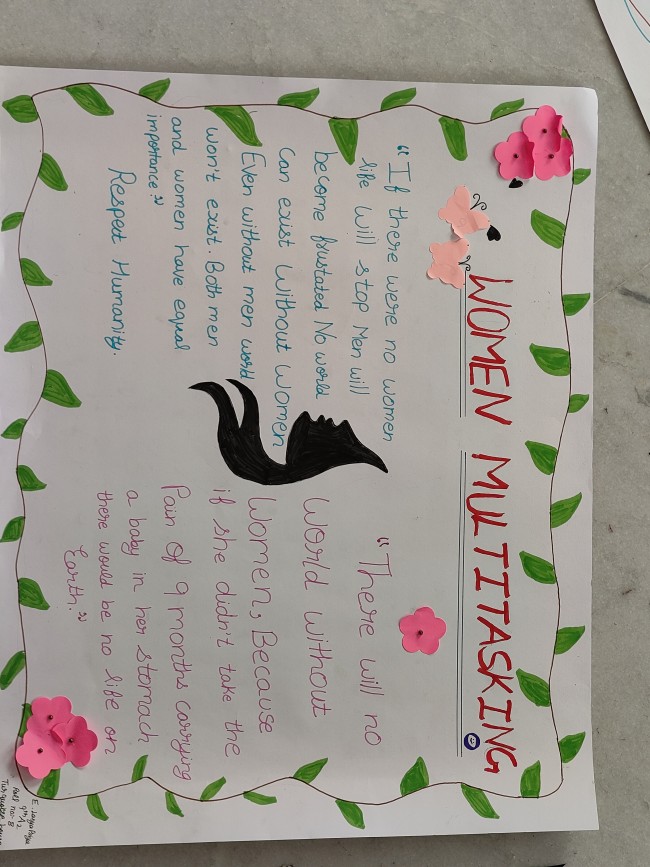 WOMEN MULTITASKING
"If there were no women
life will stop Men will
become frustated No world
can exist Without Women
Even without men word
won't exist. Both men
and women have equal
importance."
Respect Humanity.
"There will no
World without
Women, Because
if she didn't take the
Pain of 9 months carrying
a baby in her stomach
there would be no life on
Earth."